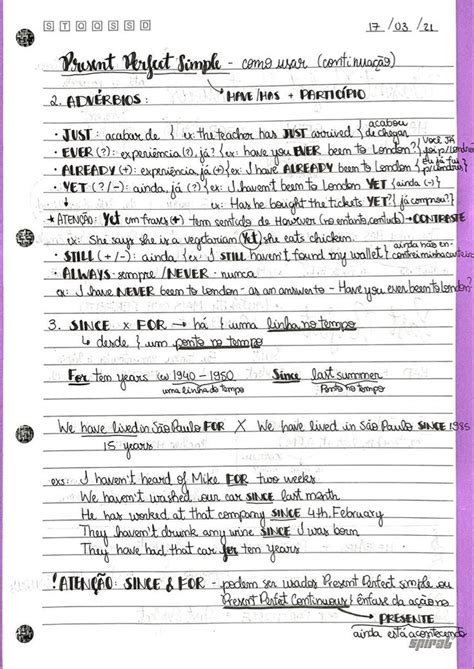 S T Q Q S S D 17/03/21
Present Perfect Simple - como usar (continuação)
2. ADVÉRBIOS: HAVE/HAS + PARTICÍPIO
• JUST: acabar de { ex: the teacher has JUST arrived { acabou de chegar
• EVER (?): experiência(?), já? { ex: have you EVER been to London? { Você já foi p/ Londres
• ALREADY (+): experiência, já (+) { ex: I have ALREADY been to London { Eu já fui p/ Londres
• YET (?/-): ainda, já (?) { ex: I haven't been to London YET { ainda (-) }
ex: Has he bought the tickets YET? { já comprou? }
* ATENÇÃO: Yet em frases (+) tem sentido de However (no entanto, contudo) → CONTRASTE
ex: She says she is a vegetarian Yet she eats chicken.
• STILL (+/-): ainda { ex: I STILL haven't found my wallet } ainda não encontrei minha carteira
• ALWAYS - sempre / NEVER - nunca
ex: I have NEVER been to London - as an answer to - Have you ever been to London?
3. SINCE x FOR → há { uma linha no tempo
↳ desde { um ponto no tempo
For ten years 1940 - 1950 Since last summer
uma linha do tempo Ponto no tempo
We have lived in São Paulo FOR X We have lived in São Paulo SINCE 1985
15 years
exs: I haven't heard of Mike FOR two weeks
We haven't washed our car SINCE last month
He has worked at that company SINCE 4th February
They haven't drunk any wine SINCE I was born
They have had that car for ten years
! ATENÇÃO: SINCE & FOR - podem ser usados Present Perfect simple ou
Present Perfect Continuous } ênfase da ação no
→ PRESENTE
ainda está acontecendo
spiral